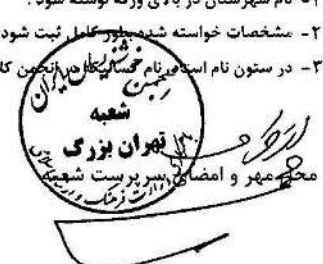 ۱- نام شهرستان در بالای ورقه نوشته شود.
۲- مشخصات خواسته شده بطور کامل ثبت شود
۳- در ستون نام استاد، نام کسانیکه در انجمن کا
انجمن خوشنویسان ایران
شعبه
تهران بزرگ
وزارت فرهنگ و
محل مهر و امضای سرپرست شعبه